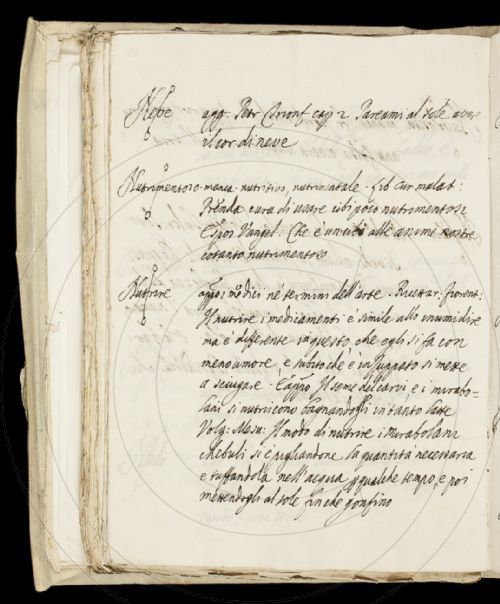 Neve agg. Petr Trionf. cap. 2. Pareami al sole aver
il cor di neve
Nutrimentoso manca. nutritivo, nutrimentale. lib Cur malat:
Prenda cura di usare cibi poco nutrimentosi
Espos Vangel. Che è un cibo alle anime nostre
cotanto nutrimentoso
Nutrire appo, i medici né termini dell'arte. Ricettar: fiorent:
Il nutrire i medicamenti è simile allo inumidire
ma è differente in questo, che egli si fa con
meno umore, e subito che è inzuppato si mette
a seccare. E appo. Il seme del carvi e i mirabo-
lani si nutricono bagnandogli in tanto latte
Volg: Mesu: Il modo di nutrire i Mirabolani
chebuli si è pigliandone la quantità necessaria
e tuffandola nell'acqua p qualche tempo, e poi
mettendogli al sole finche gonfino